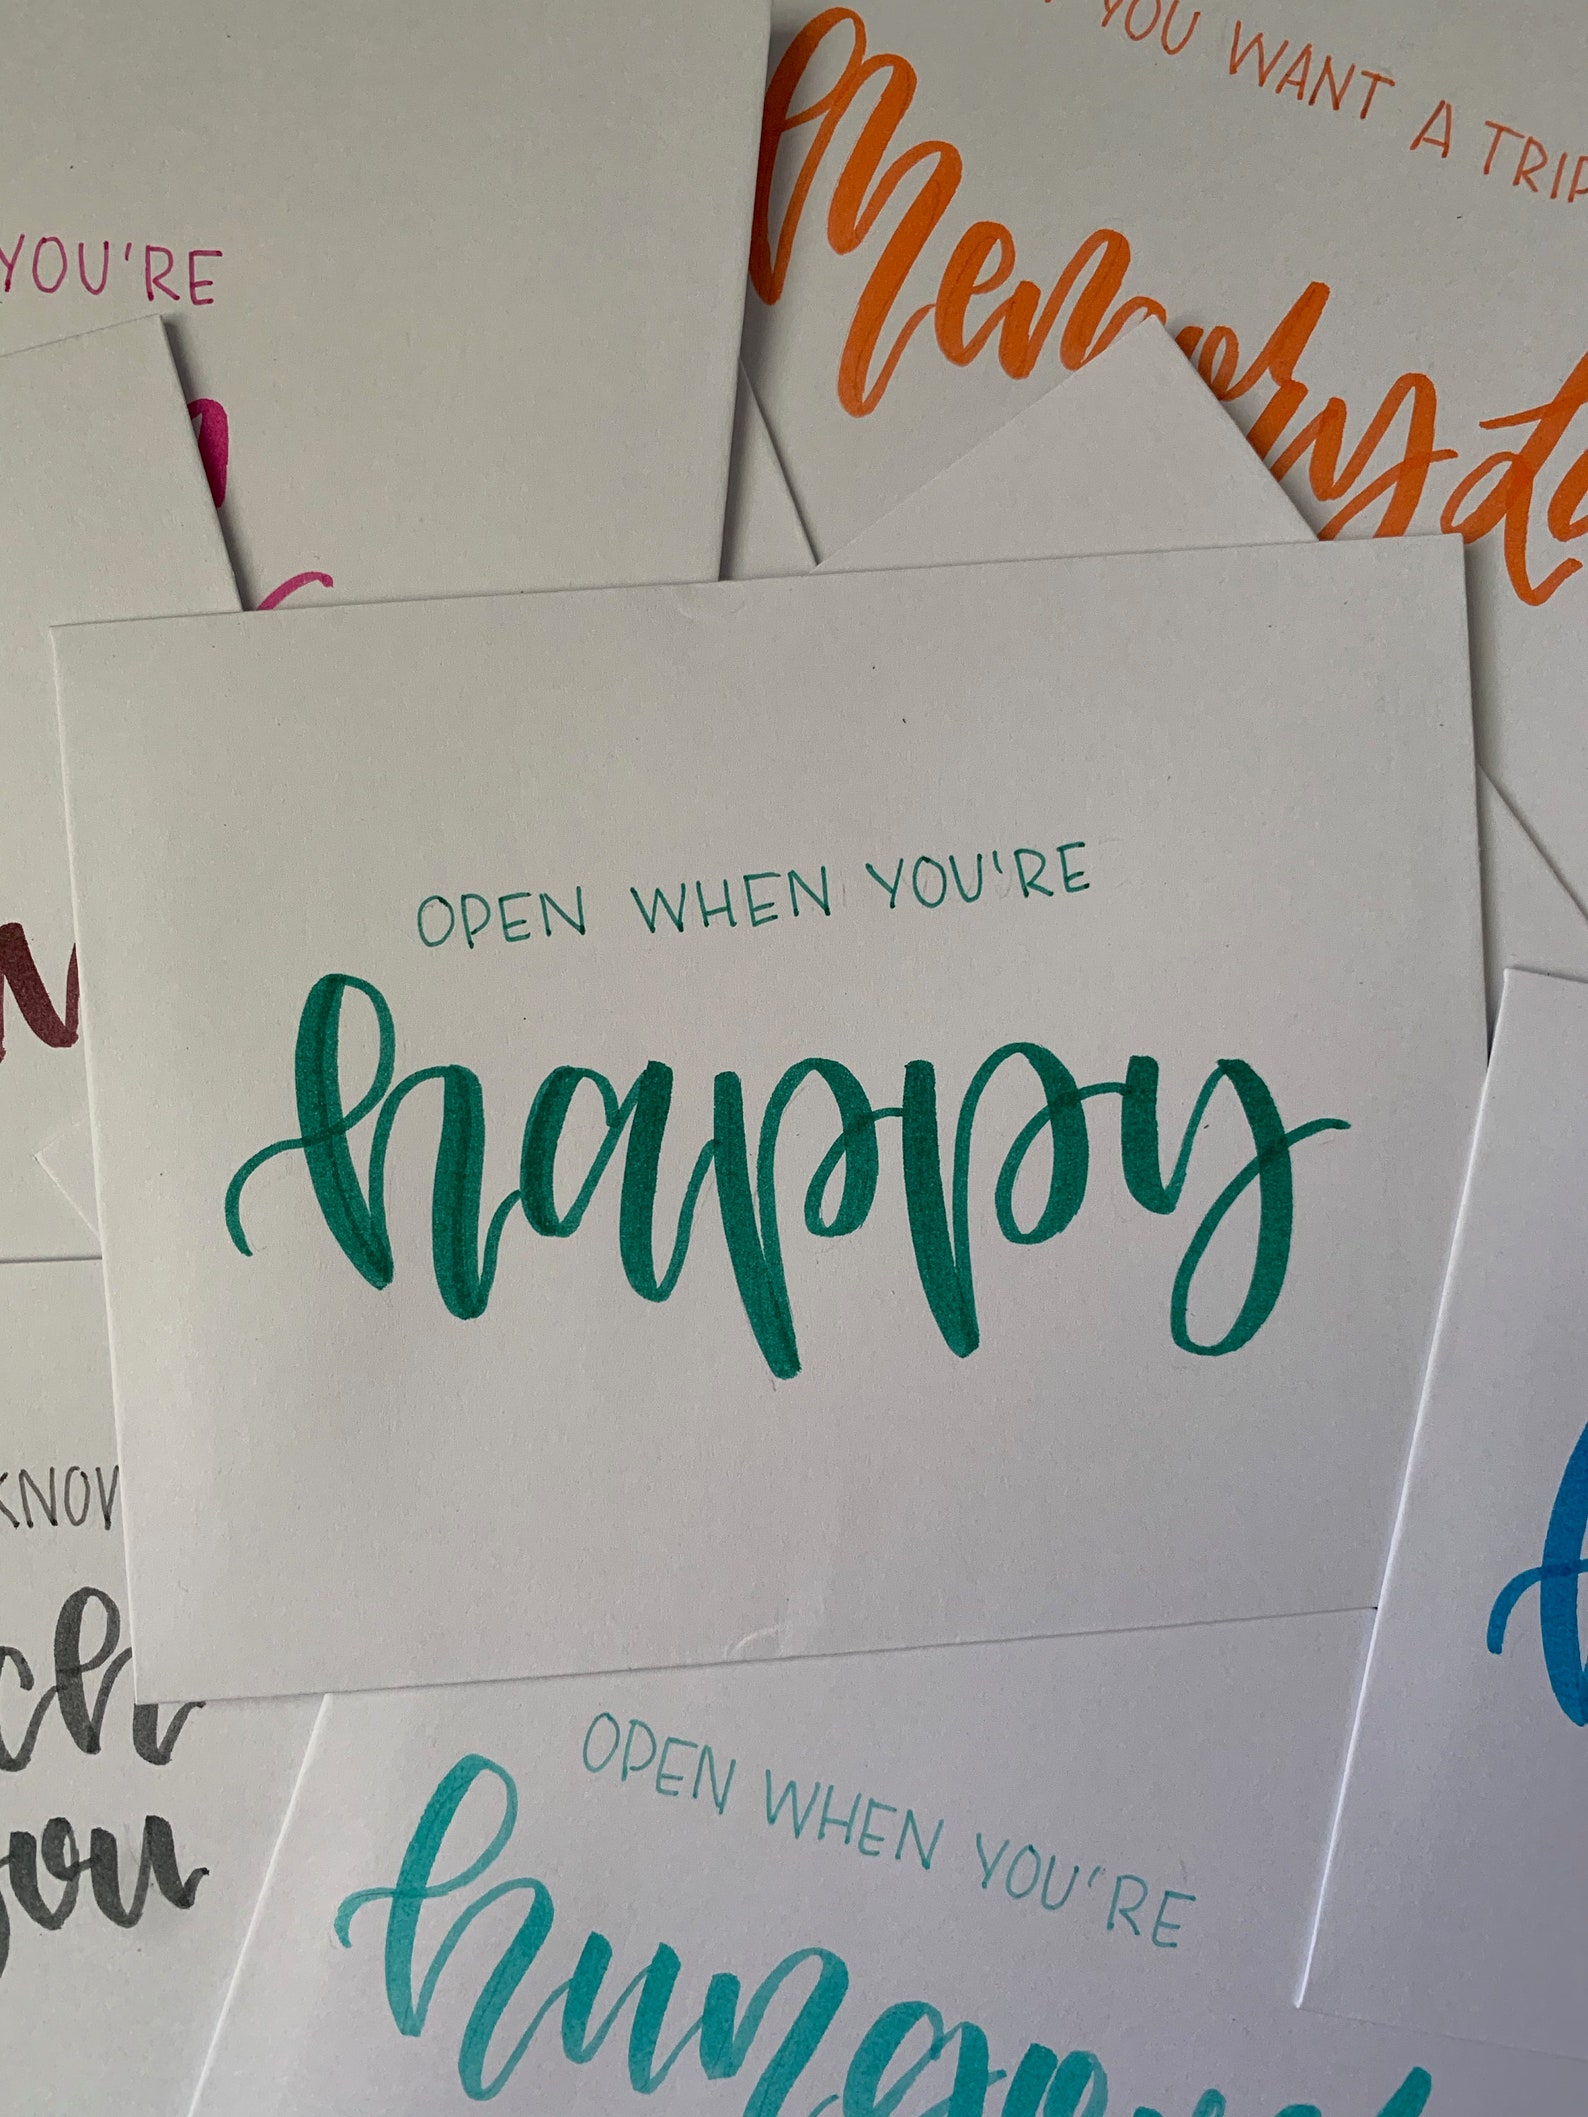 YOU WANT A TRIP
Memory
YOU'RE
OPEN WHEN YOU'RE
happy
KNOW
you
OPEN WHEN YOU'RE
hungry